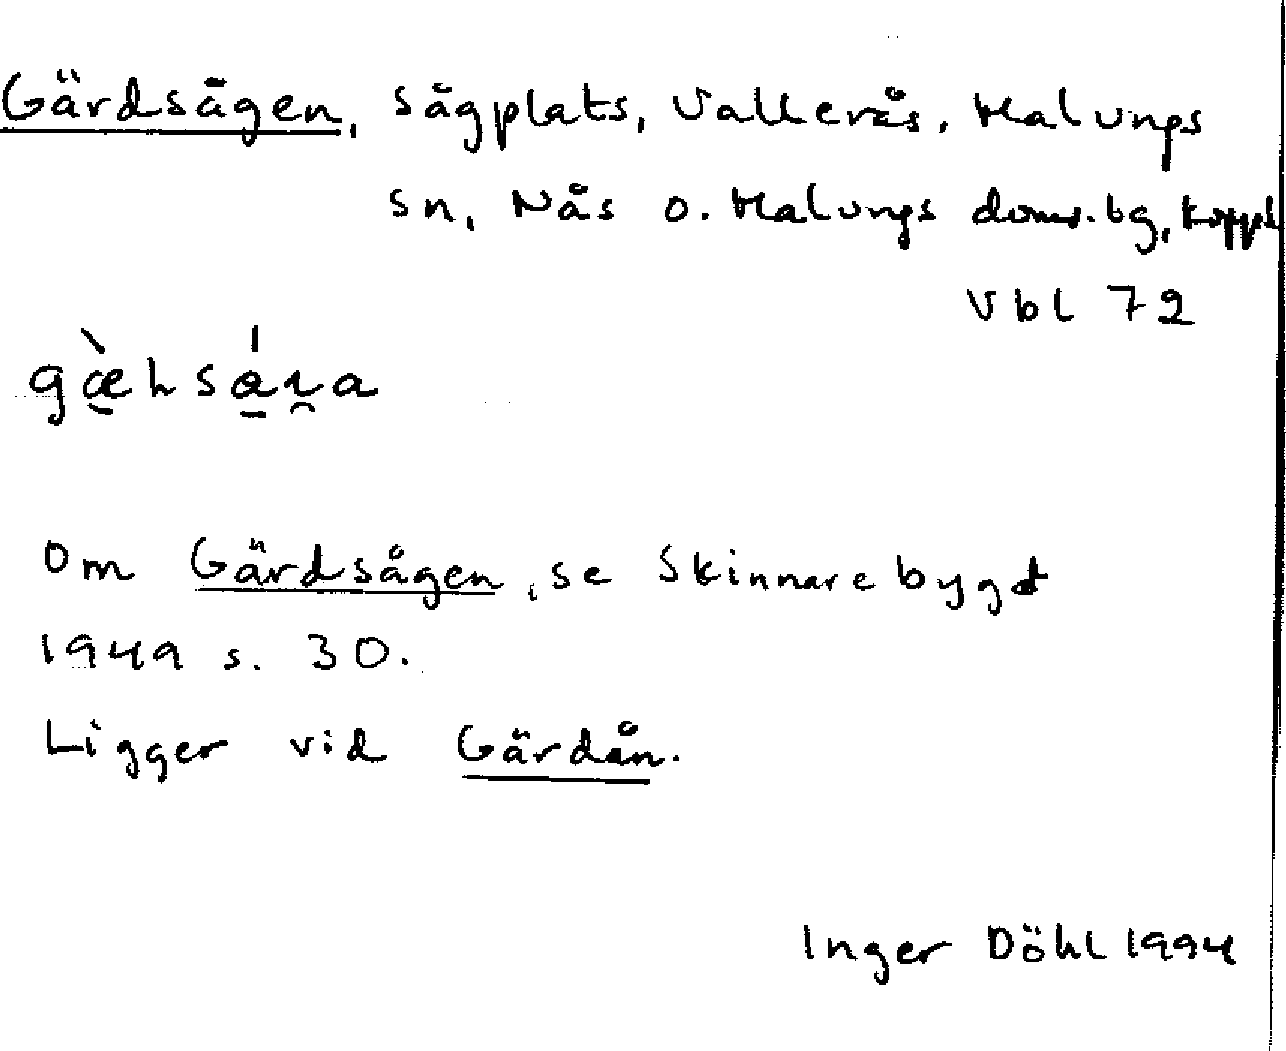 Gärdsågen, sågplats, Vallerås, Malungs
sn, Nås o. Malungs doms.bg, Koppb
Vbl 72
Om Gärdsågen, se Skinnarebygd
1949 s. 30.
Ligger vid Gärdån.
Inger Döhl 1994